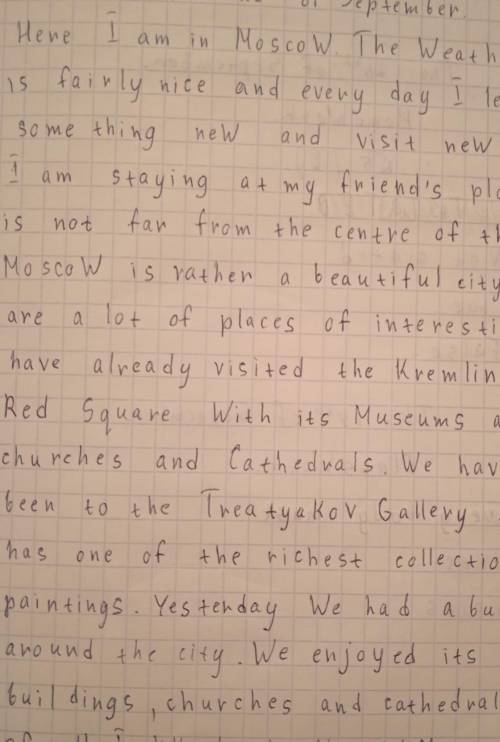 of September.
Here I am in MoscoW. The Weath
is fairly nice and every day I le
some thing new and visit new
I am staying at my friend's pla
is not far from the centre of th
MoscoW is rather a beautiful city
are a lot of places of interesti
have already visited the Kremlin
Red Square With its Museums a
churches and Cathedrals. We hav
been to the TreatyaKov Gallery
has one of the richest collectio
paintings. Yesterday We had a bu
around the city. We enjoyed its
buildings, churches and cathedral